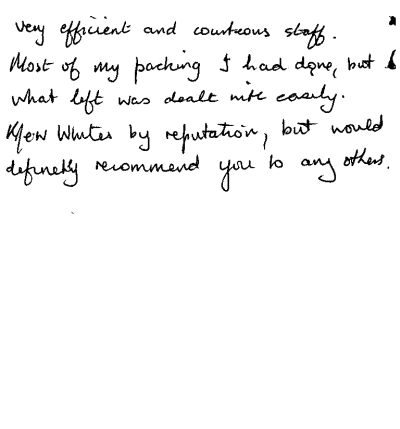 very efficient and courteous staff.
Most of my packing I had done, but
what left was dealt with easily.
Knew Whites by reputation, but would
definetly recommend you to any others.